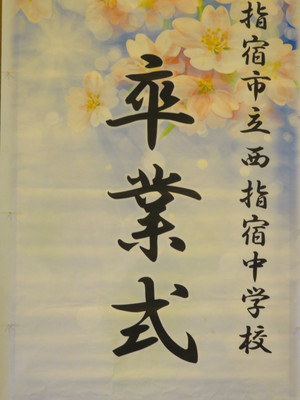 指宿市立西指宿中学校
卒業式